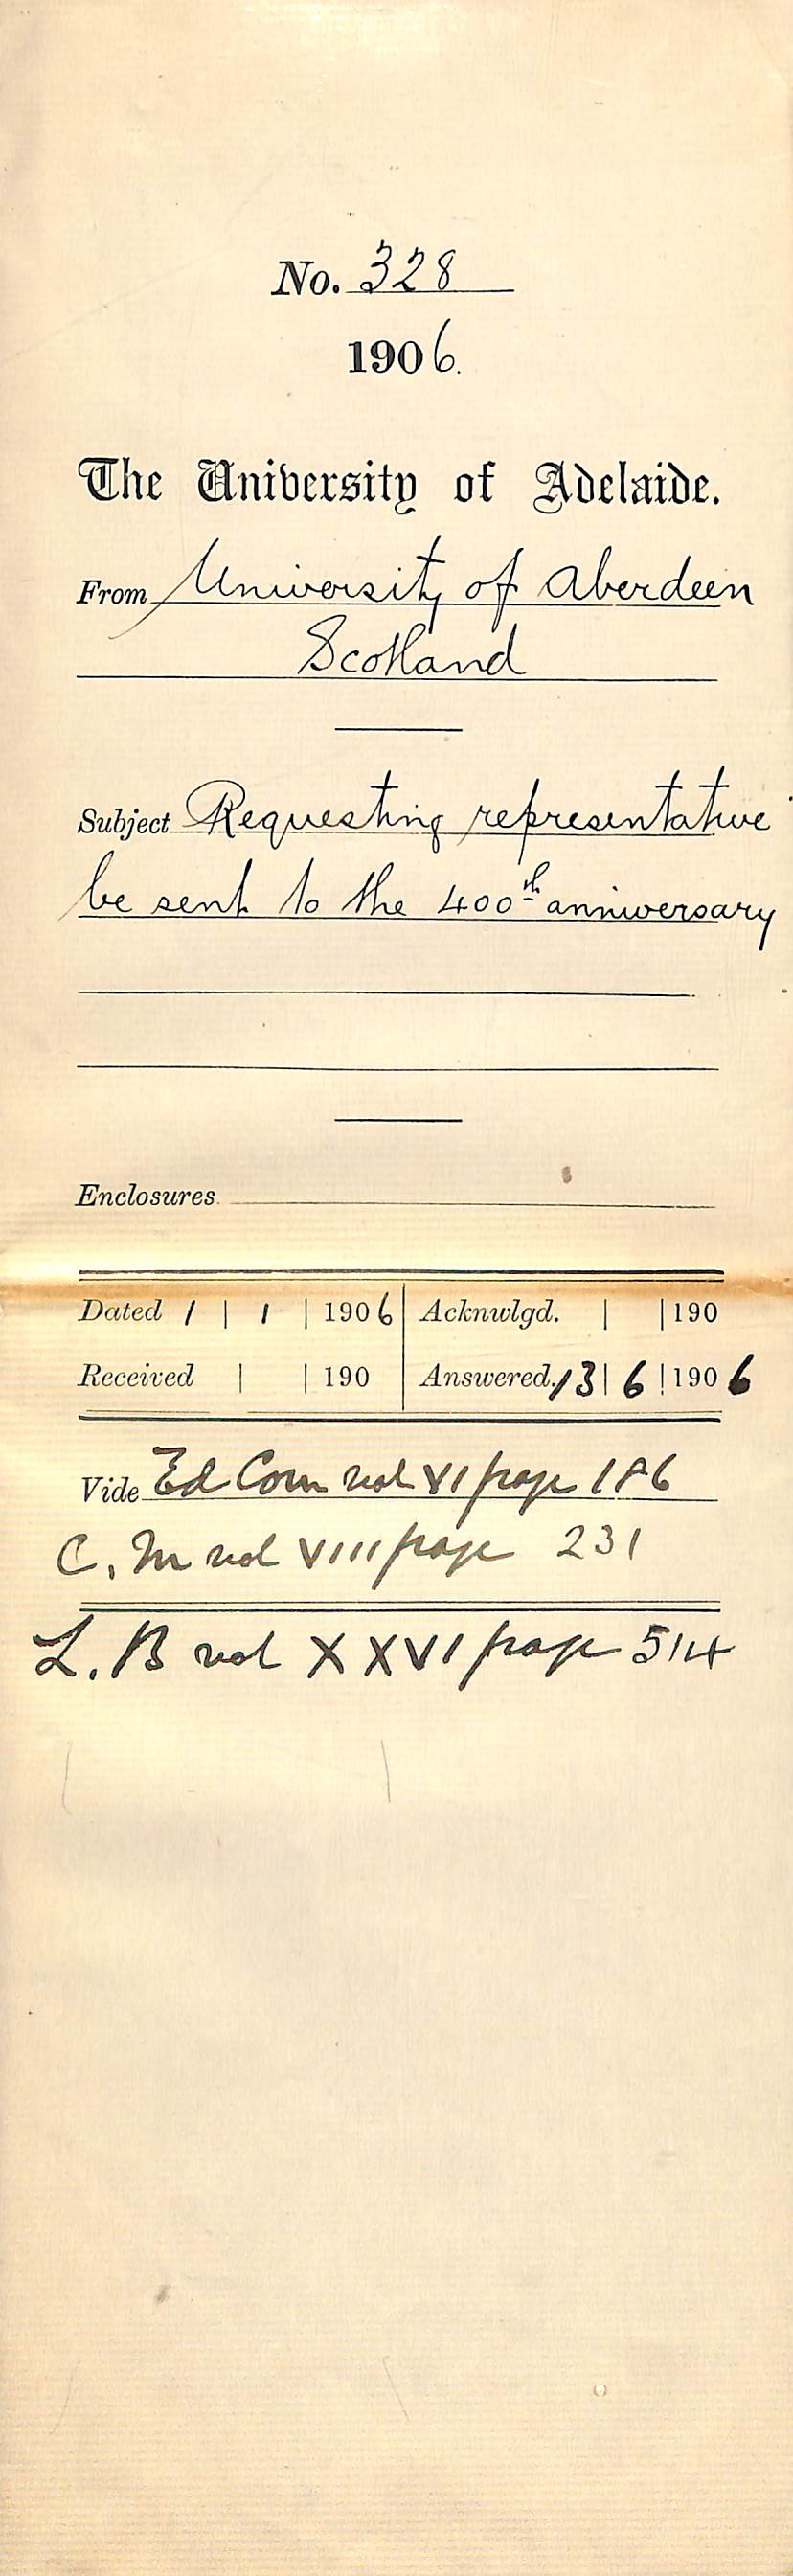 No. 328
1906.
The University of Adelaide.
From University of Aberdeen
Scotland
Subject Requesting representative
be sent to the 400th anniversary
Enclosures
Dated 1 | 1 | 1906 | Acknwlgd. | | 190
Received | | 190 | Answered. 13 | 6 | 1906
Vide Ed Com vol VI page 186
C. M vol VIII page 231
L. B vol XXVI page 514